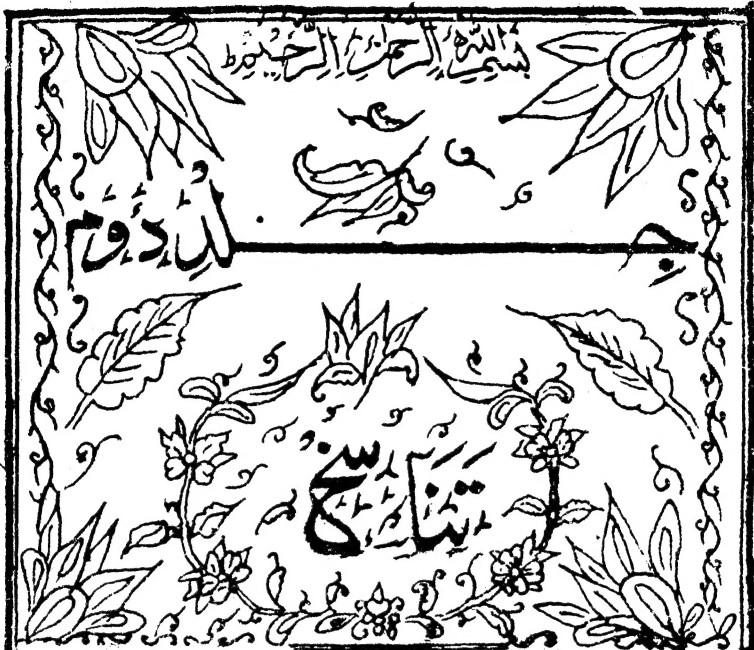 بِسْمِ اللهِ الرَّحْمٰنِ الرَّحِيْمِ
جِلدِ دُوَم
تَنَاسُخْ